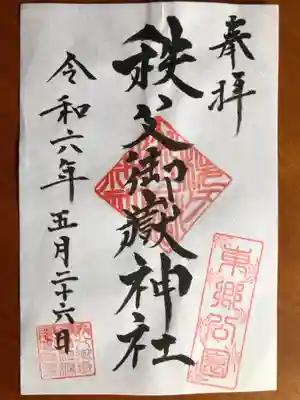 奉拝
秩父御嶽神社
東郷公園
令和六年五月二十六日